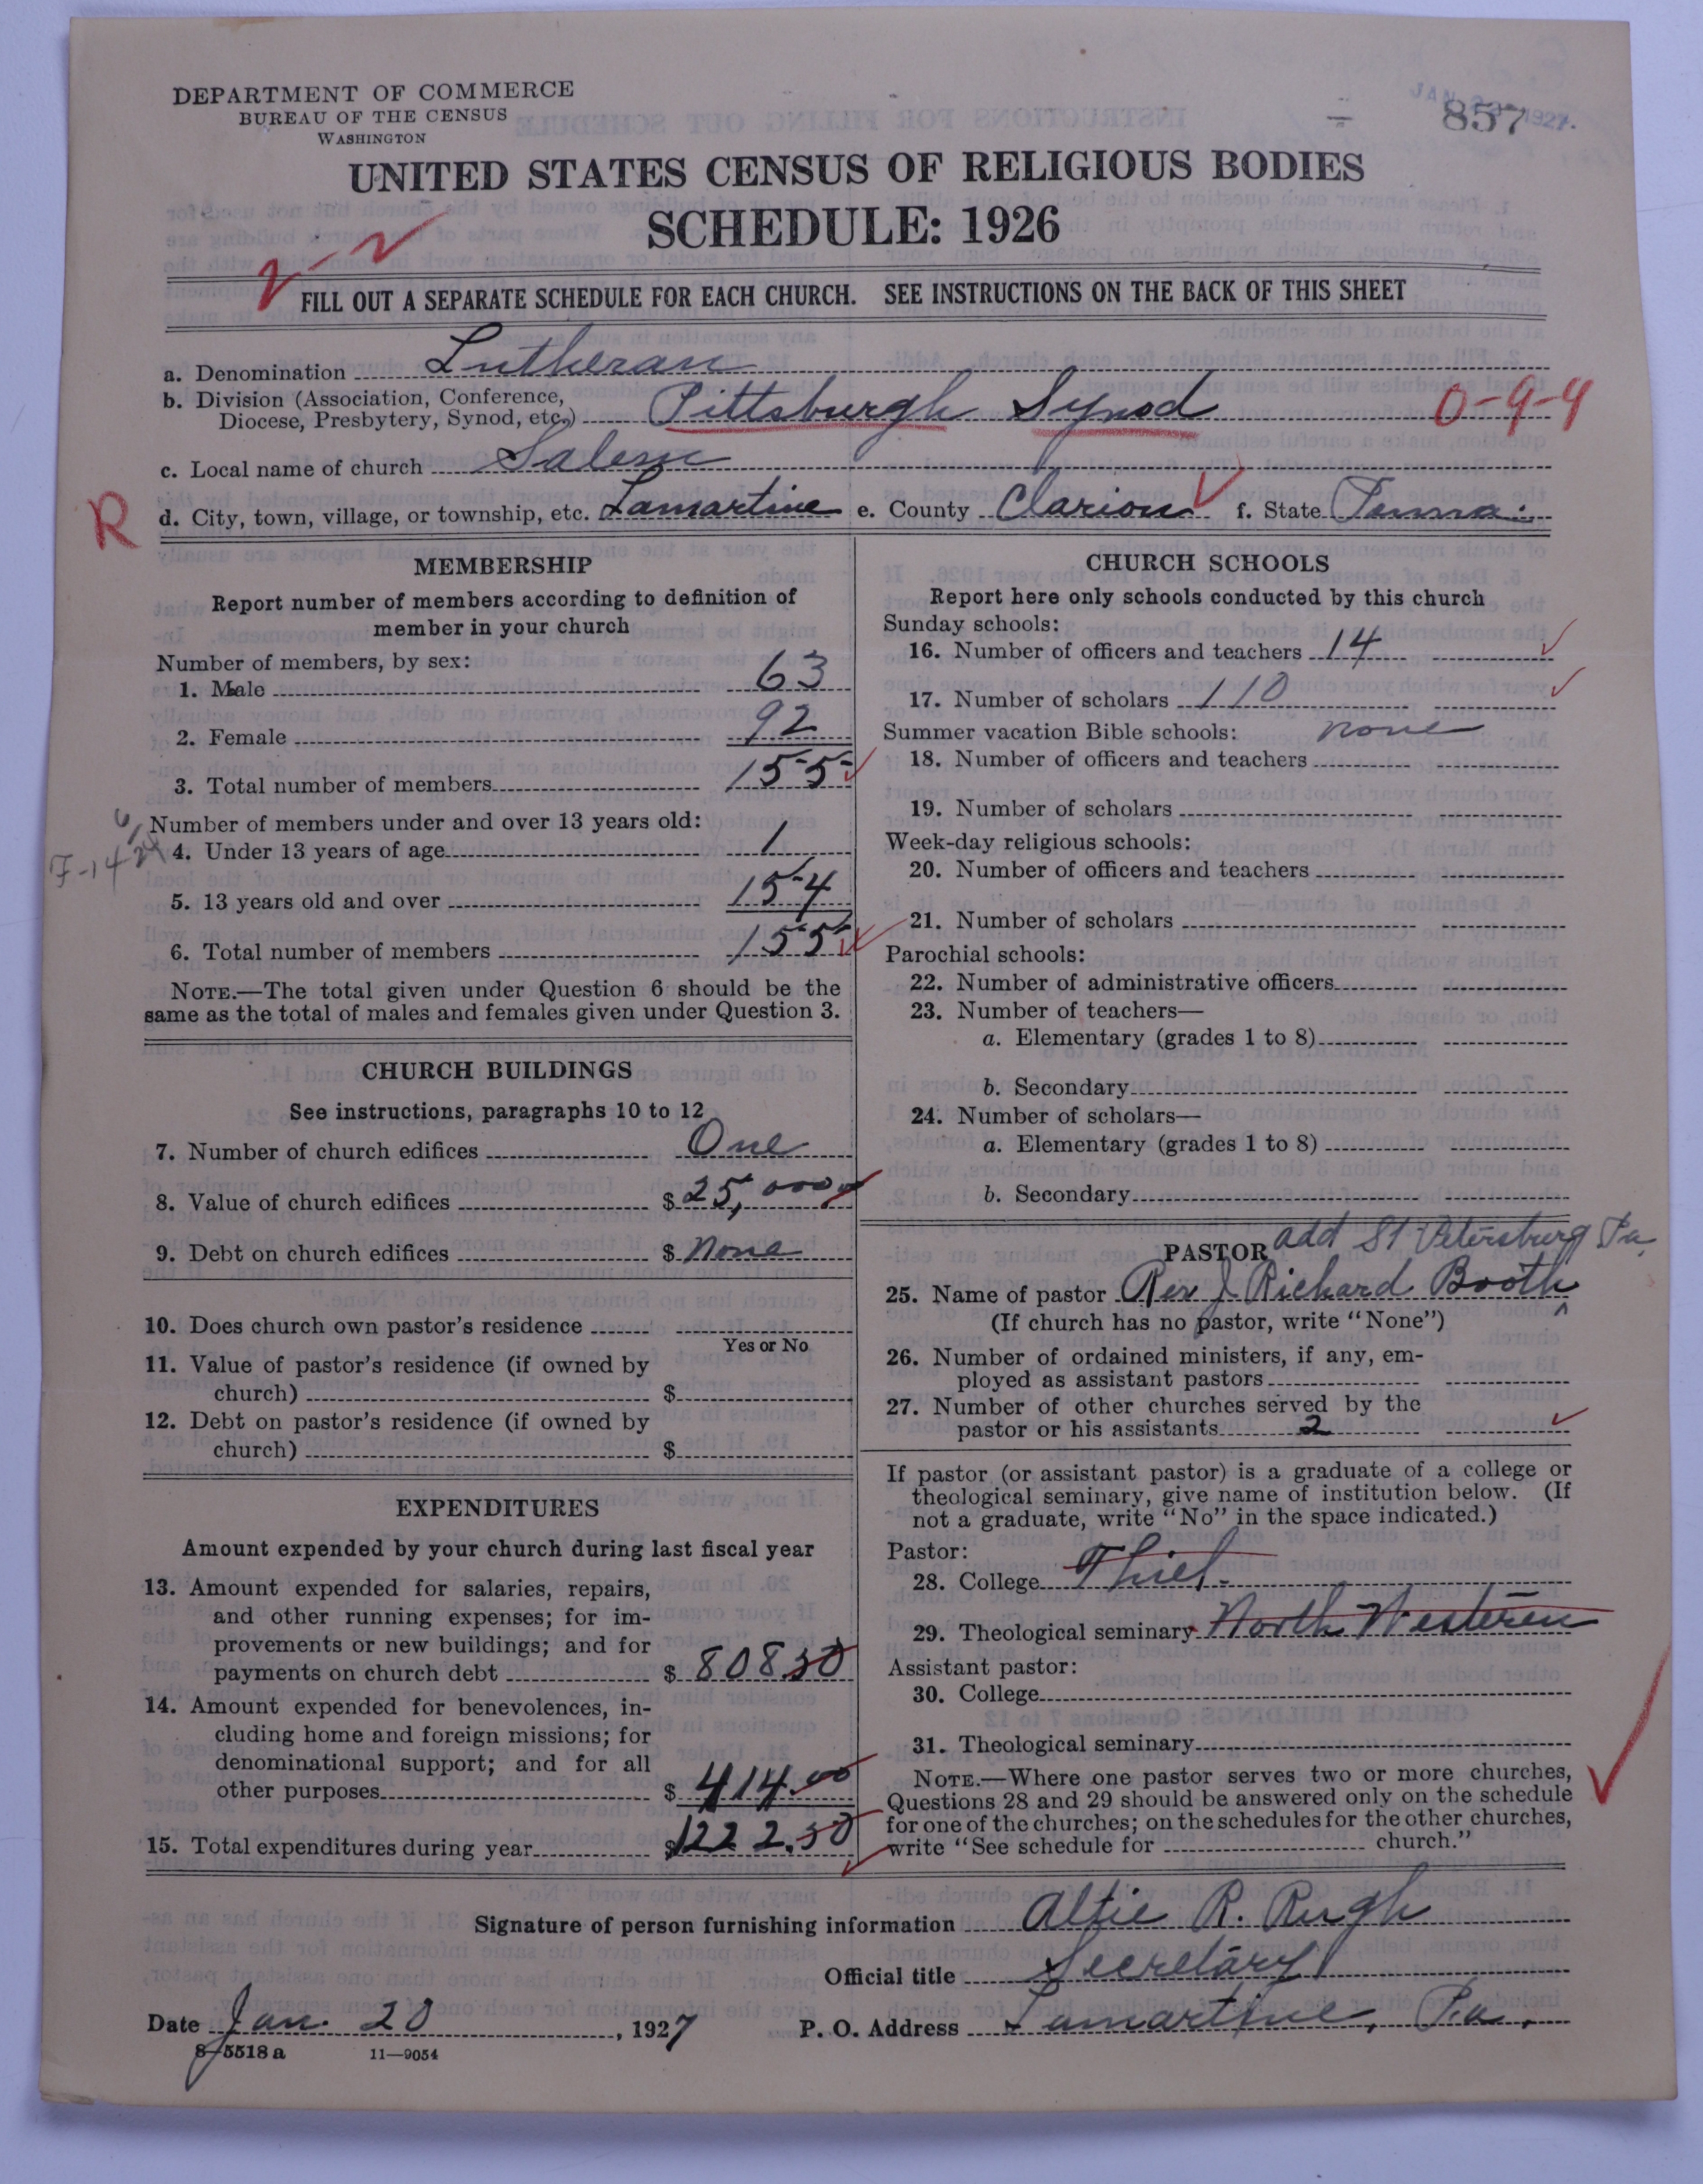 DEPARTMENT OF COMMERCE
BUREAU OF THE CENSUS
WASHINGTON
857
JAN 1927.
UNITED STATES CENSUS OF RELIGIOUS BODIES
SCHEDULE: 1926
2-2
FILL OUT A SEPARATE SCHEDULE FOR EACH CHURCH. SEE INSTRUCTIONS ON THE BACK OF THIS SHEET
a. Denomination Lutheran
b. Division (Association, Conference,
Diocese, Presbytery, Synod, etc.) Pittsburgh Synod 0-9-4
c. Local name of church Salem
R
d. City, town, village, or township, etc. Lamartine e. County Clarion f. State Penna.
MEMBERSHIP
Report number of members according to definition of
member in your church
Number of members, by sex:
1. Male 63
2. Female 92
3. Total number of members 155
Number of members under and over 13 years old:
4. Under 13 years of age 1
F-14
5. 13 years old and over 154
6. Total number of members 155
NOTE.—The total given under Question 6 should be the
same as the total of males and females given under Question 3.
CHURCH BUILDINGS
See instructions, paragraphs 10 to 12
7. Number of church edifices One
8. Value of church edifices $ 25,000
9. Debt on church edifices $ None
10. Does church own pastor's residence
Yes or No
11. Value of pastor's residence (if owned by
church) $
12. Debt on pastor's residence (if owned by
church) $
EXPENDITURES
Amount expended by your church during last fiscal year
13. Amount expended for salaries, repairs,
and other running expenses; for im-
provements or new buildings; and for
payments on church debt $ 808.50
14. Amount expended for benevolences, in-
cluding home and foreign missions; for
denominational support; and for all
other purposes $ 414.00
15. Total expenditures during year $1222.50
CHURCH SCHOOLS
Report here only schools conducted by this church
Sunday schools:
16. Number of officers and teachers 14
17. Number of scholars 110
Summer vacation Bible schools: none
18. Number of officers and teachers
19. Number of scholars
Week-day religious schools:
20. Number of officers and teachers
21. Number of scholars
Parochial schools:
22. Number of administrative officers
23. Number of teachers—
a. Elementary (grades 1 to 8)
b. Secondary
24. Number of scholars—
a. Elementary (grades 1 to 8)
b. Secondary
PASTOR add St Petersburg Pa
25. Name of pastor Rev J. Richard Booth
(If church has no pastor, write "None")
26. Number of ordained ministers, if any, em-
ployed as assistant pastors
27. Number of other churches served by the
pastor or his assistants 2
If pastor (or assistant pastor) is a graduate of a college or
theological seminary, give name of institution below. (If
not a graduate, write "No" in the space indicated.)
Pastor:
28. College Thiel
29. Theological seminary North Western
Assistant pastor:
30. College
31. Theological seminary
NOTE.—Where one pastor serves two or more churches,
Questions 28 and 29 should be answered only on the schedule
for one of the churches; on the schedules for the other churches,
write "See schedule for church."
Signature of person furnishing information Altie R. Rugh
Official title Secretary
Date Jan. 20, 1927 P. O. Address Lamartine, Pa.
8-5518a 11-9054